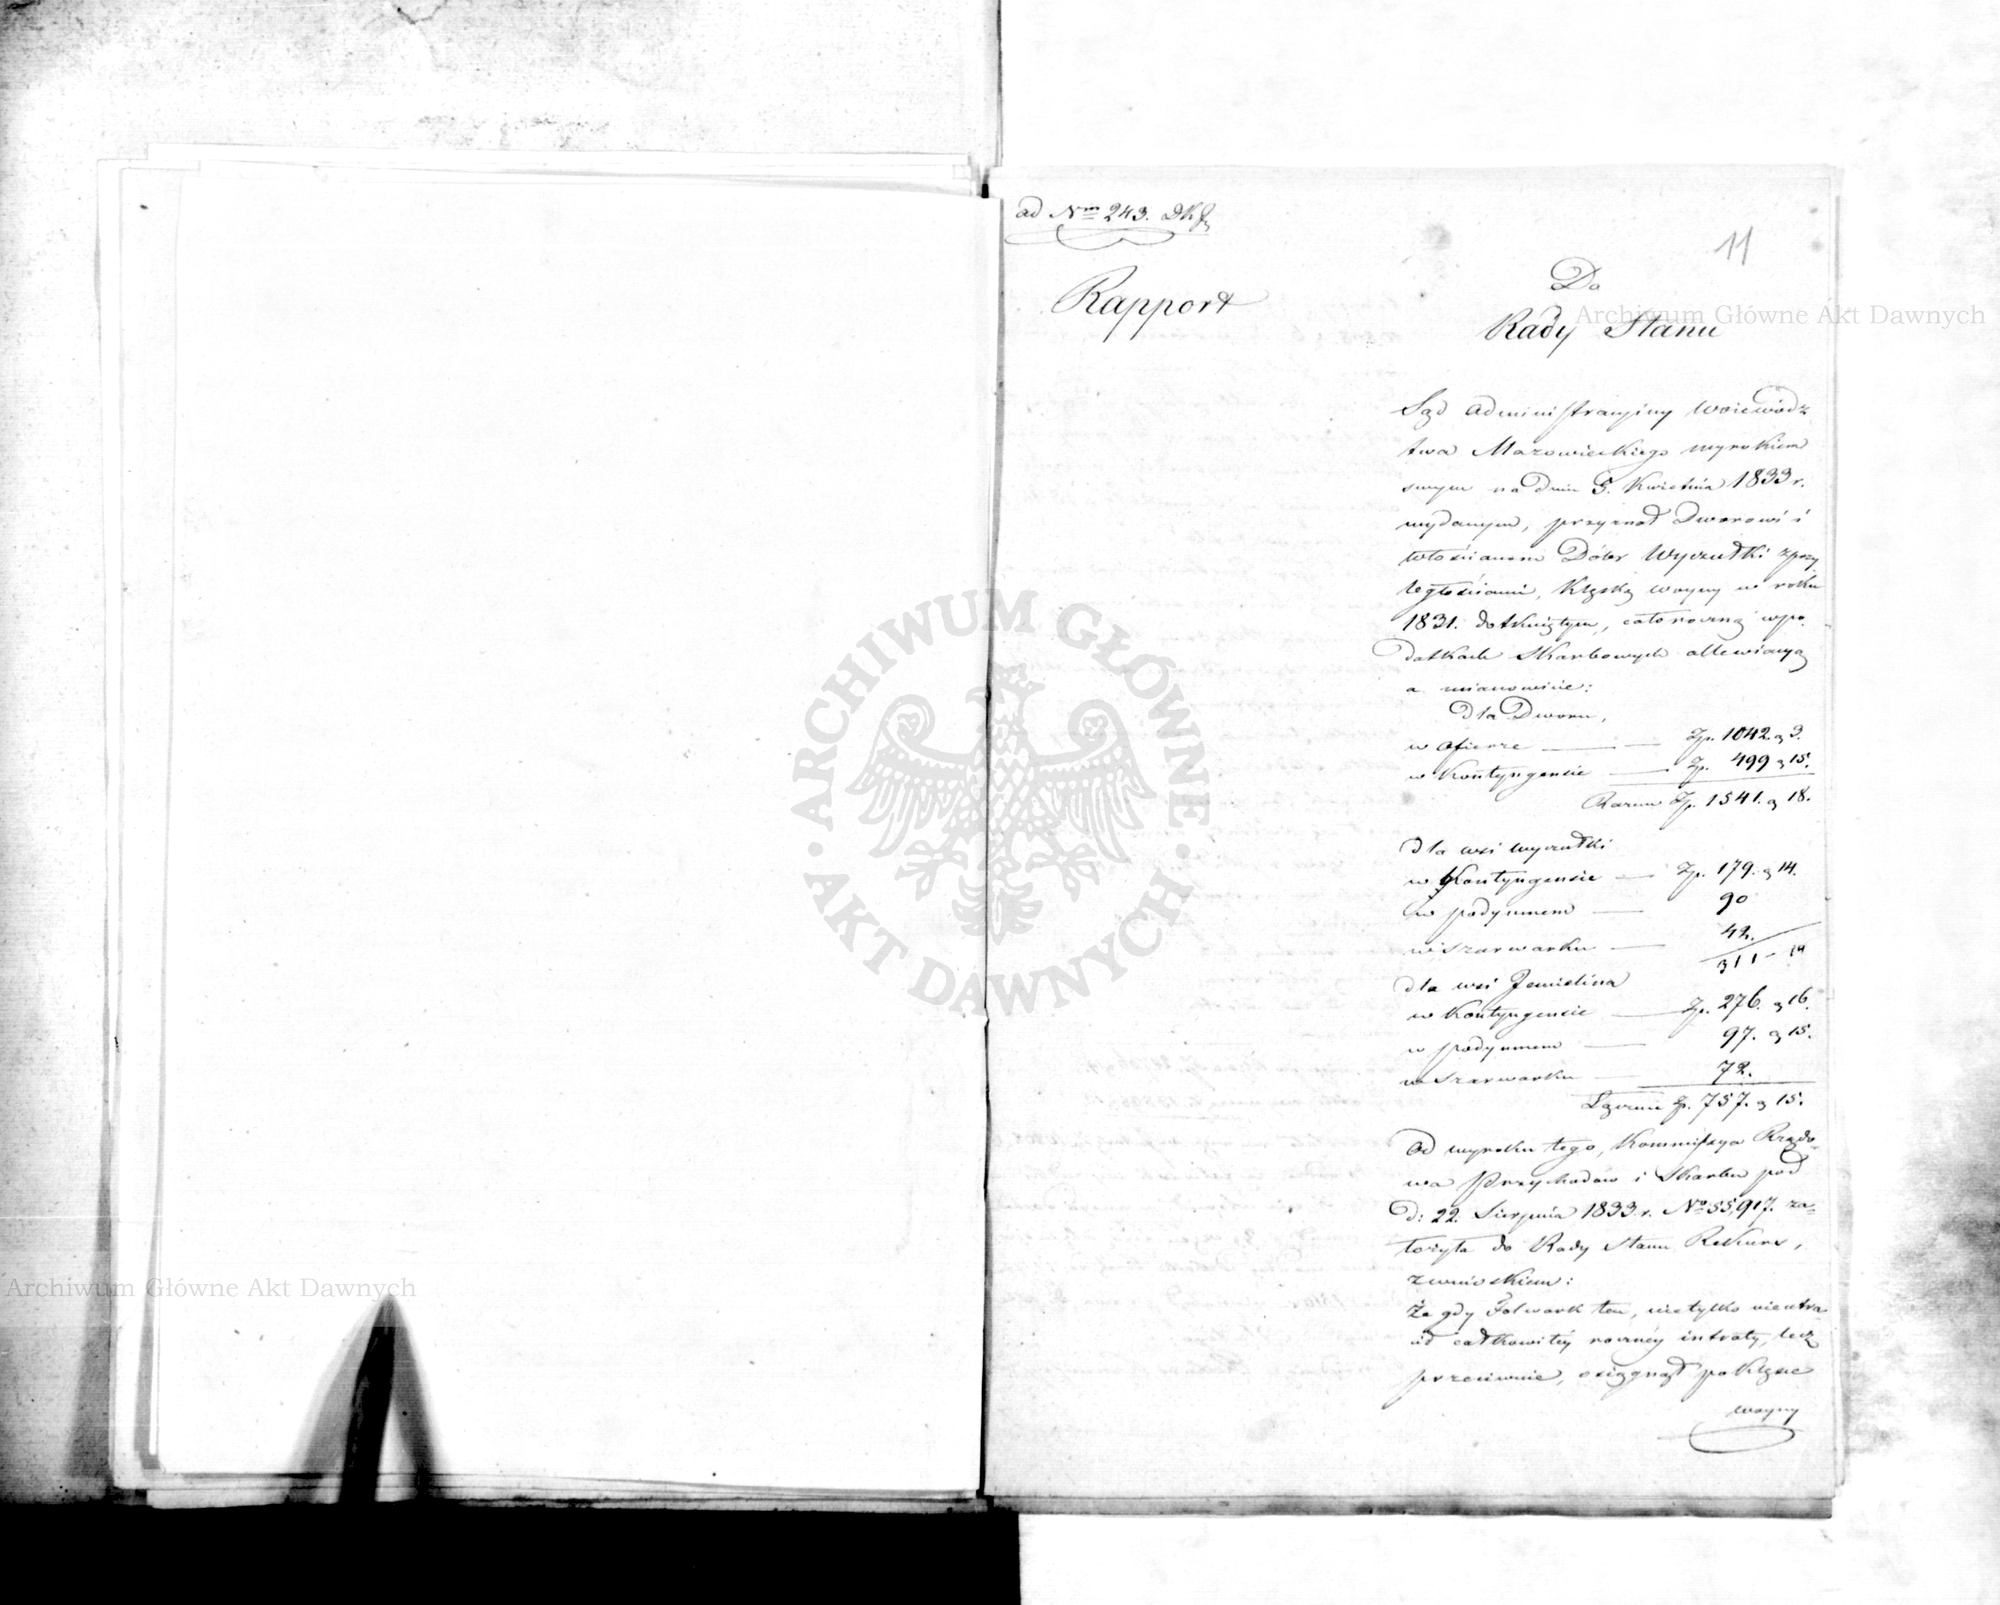 ad Nrm 243. DKJ
11
Rapport
Do
Rady Stanu
Archiwum Główne Akt Dawnych
Sąd administracyiny Woiewódz
twa Mazowieckiego wyrokiem
swym na dniu 5. Kwietnia 1833 r.
wydanym, przyznał Dworowi i
włościanom Dóbr Wyczułki z przy
ległościami, klęską woyny w roku
1831. dotkniętym, całoroczną w po
datkach Skarbowych allewiacyą
a mianowicie:
dla Dworu,
w ofierze — Zp. 1042 g 3.
w Kontyngensie — Zp. 499 g 15.
Razem Zp. 1541. g 18.
dla wsi wyczułki
w Kontyngensie — Zp. 179. g 14.
w podymnem — 90
w szarwarku — 42.
311 - 14
dla wsi Jemielina
w Kontyngensie — Zp. 276. g 16.
w podymnem — 97. g 15.
w szarwarku — 72.
Łącznie Zp. 757. g 15.
Od wyroku tego, Kommissya Rządo-
wa Przychodów i Skarbu pod
d: 22. Sierpnia 1833 r. No 55,917. za-
łożyła do Rady Stanu Rekurs,
z wnioskiem:
Że gdy Folwark ten, nietylko nieutra
cił całkowitéy rocznéy intraty, lecz
przeciwnie, osiągnął po klęsce
woyny
ARCHIWUM GŁÓWNE
AKT DAWNYCH
Archiwum Główne Akt Dawnych